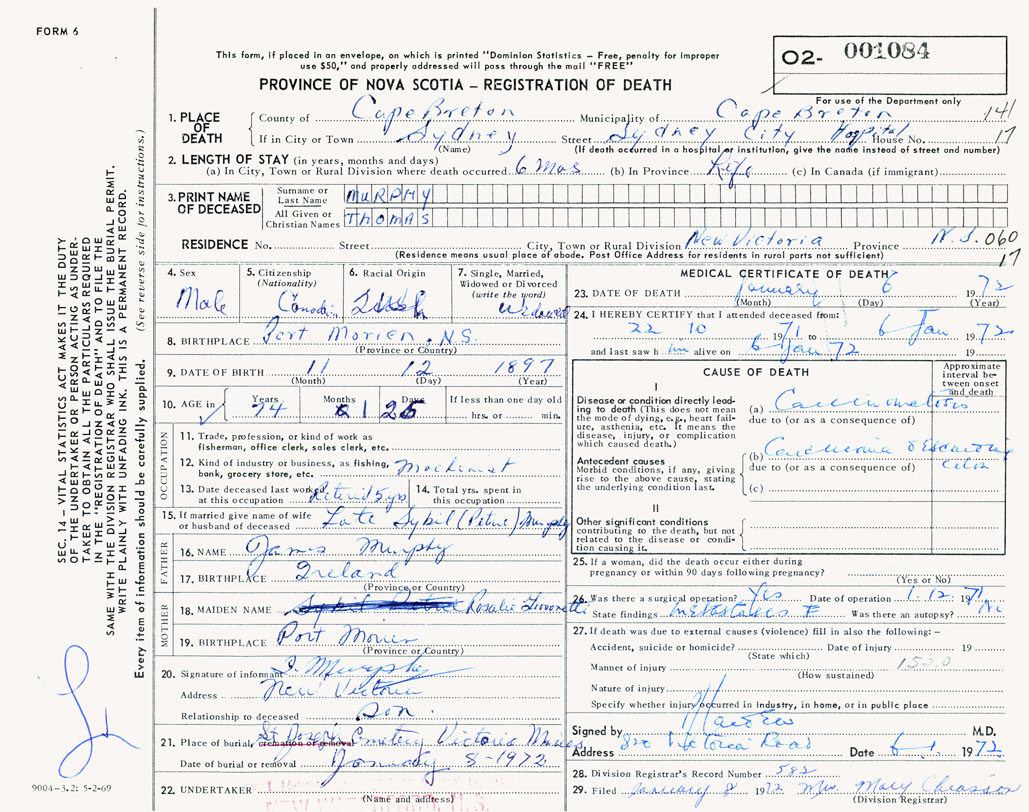 FORM 6
This form, if placed in an envelope, on which is printed "Dominion Statistics – Free, penalty for improper
use $50," and properly addressed will pass through the mail "FREE"
O2- 001084
For use of the Department only
PROVINCE OF NOVA SCOTIA – REGISTRATION OF DEATH
1. PLACE OF DEATH
County of Cape Breton Municipality of Cape Breton 141
If in City or Town Sydney Street Sydney City Hospital House No. 17
(Name) (If death occurred in a hospital or institution, give the name instead of street and number)
2. LENGTH OF STAY (in years, months and days)
(a) In City, Town or Rural Division where death occurred 6 Mos (b) In Province Life (c) In Canada (if immigrant)
3. PRINT NAME OF DECEASED
Surname or Last Name MURPHY
All Given or Christian Names THOMAS
RESIDENCE No. Street City, Town or Rural Division New Victoria Province N.S. 060
(Residence means usual place of abode. Post Office Address for residents in rural parts not sufficient) 17
4. Sex Male
5. Citizenship (Nationality) Canadian
6. Racial Origin Irish
7. Single, Married, Widowed or Divorced (write the word) Widowed
8. BIRTHPLACE Port Morien, N.S.
(Province or Country)
9. DATE OF BIRTH 11 12 1897
(Month) (Day) (Year)
10. AGE in Years 74 Months 1 Days 25 If less than one day old
hrs. or min.
OCCUPATION
11. Trade, profession, or kind of work as
fisherman, office clerk, sales clerk, etc.
12. Kind of industry or business, as fishing, Machinist
bank, grocery store, etc.
13. Date deceased last worked at this occupation Retired 5 yrs
14. Total yrs. spent in this occupation
15. If married give name of wife
or husband of deceased Late Sybil (Petrie) Murphy
FATHER
16. NAME James Murphy
17. BIRTHPLACE Ireland
(Province or Country)
MOTHER
18. MAIDEN NAME Rosalie
19. BIRTHPLACE Port Morien
(Province or Country)
20. Signature of informant J. Murphy
Address New Victoria
Relationship to deceased Son.
21. Place of burial, cremation or removal St Joseph Cemetery Victoria Mines
Date of burial or removal January 8-1972
22. UNDERTAKER
(Name and address)
MEDICAL CERTIFICATE OF DEATH
23. DATE OF DEATH January 6 1972
(Month) (Day) (Year)
24. I HEREBY CERTIFY that I attended deceased from:
22 10 1971 to 6 Jan 1972
and last saw him alive on 6 Jan 72 19
CAUSE OF DEATH
Approximate interval between onset and death
I
Disease or condition directly lead-
ing to death (This does not mean
the mode of dying, e.g., heart fail-
ure, asthenia, etc. It means the
disease, injury, or complication
which caused death.)
(a) Carcinomatosis
due to (or as a consequence of)
Antecedent causes
Morbid conditions, if any, giving
rise to the above cause, stating
the underlying condition last.
(b) Carcinoma descending colon
due to (or as a consequence of)
(c)
II
Other significant conditions
contributing to the death, but not
related to the disease or condi-
tion causing it.
25. If a woman, did the death occur either during
pregnancy or within 90 days following pregnancy?
(Yes or No)
26. Was there a surgical operation? Yes Date of operation 1.12. 1971
State findings metastases Was there an autopsy? No
27. If death was due to external causes (violence) fill in also the following: –
Accident, suicide or homicide? Date of injury 19
(State which)
Manner of injury 153.0
(How sustained)
Nature of injury
Specify whether injury occurred in industry, in home, or in public place
Signed by M.D.
Address 820 Victoria Road Date 6.1. 1972
28. Division Registrar's Record Number 582
29. Filed January 8 1972 Mrs. Mary Chiasson
(Division Registrar)
SEC. 14 – VITAL STATISTICS ACT MAKES IT THE DUTY
OF THE UNDERTAKER OR PERSON ACTING AS UNDER-
TAKER TO OBTAIN ALL THE PARTICULARS REQUIRED
IN THE "REGISTRATION OF DEATH" AND TO FILE THE
SAME WITH THE DIVISION REGISTRAR WHO SHALL ISSUE THE BURIAL PERMIT.
WRITE PLAINLY WITH UNFADING INK. THIS IS A PERMANENT RECORD.
Every item of information should be carefully supplied. (See reverse side for instructions.)
9004-3.2: 5-2-69